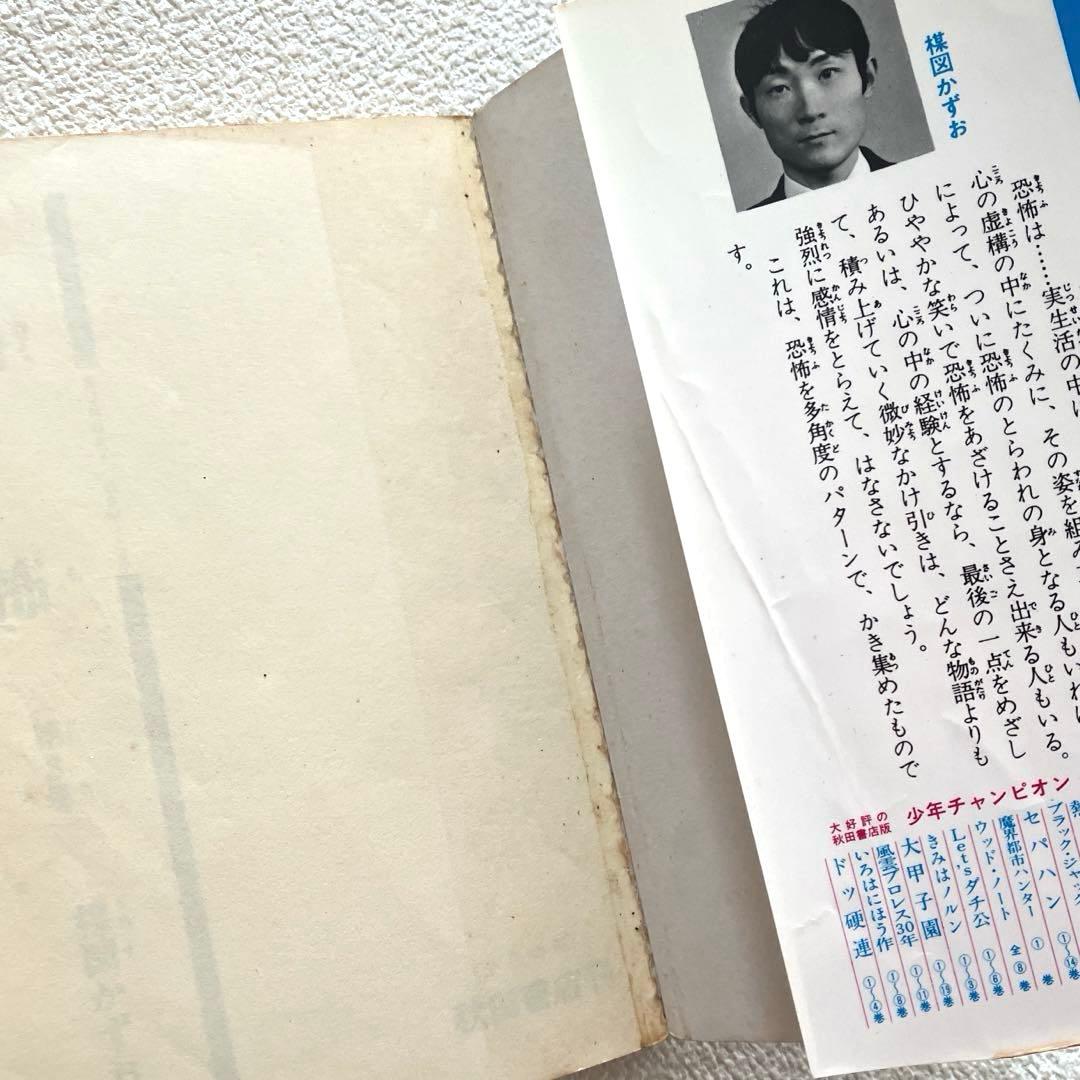 楳図かずお
恐怖は……実生活の中に
心の虚構の中にたくみに、その姿を組み
によって、ついに恐怖のとらわれの身となる人もいれば
ひややかな笑いで恐怖をあざけることさえ出来る人もいる。
あるいは、心の中の経験とするなら、最後の一点をめざし
て、積み上げていく微妙なかけ引きは、どんな物語よりも
強烈に感情をとらえて、はなさないでしょう。
これは、恐怖を多角度のパターンで、かき集めたもので
す。
大好評の
秋田書店版
少年チャンピオン
ブラック・ジャック ①〜⑭巻
セパハン ① 巻
魔界都市ハンター 全⑧巻
ウッド・ノート ①〜⑥巻
Let'sダチ公 ①〜③巻
きみはノルン
大甲子園 ①〜⑲巻
風雲プロレス30年 ①〜⑪巻
いろはにほう作 ①〜⑧巻
ドッ硬連 ①〜④巻